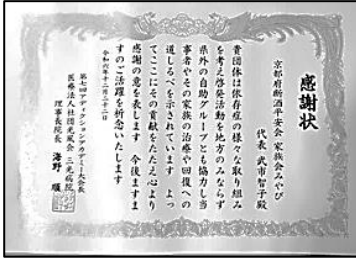 感謝状
京都府断酒平安会 家族会みやび
代表 武市智子殿
貴団体は依存症の様々な取り組み
を考え啓発活動を地方のみならず
県外の自助グループとも協力し当
事者やその家族の治療や回復への
道しるべを示されています よっ
てここにその貢献をたたえ心より
感謝の意を表します 今後ますま
すのご活躍を祈念いたします
令和六年十二月二十二日
第七回アディクションアカデミー大会長
医療法人社団光風会 三光病院
理事長院長 海野 順